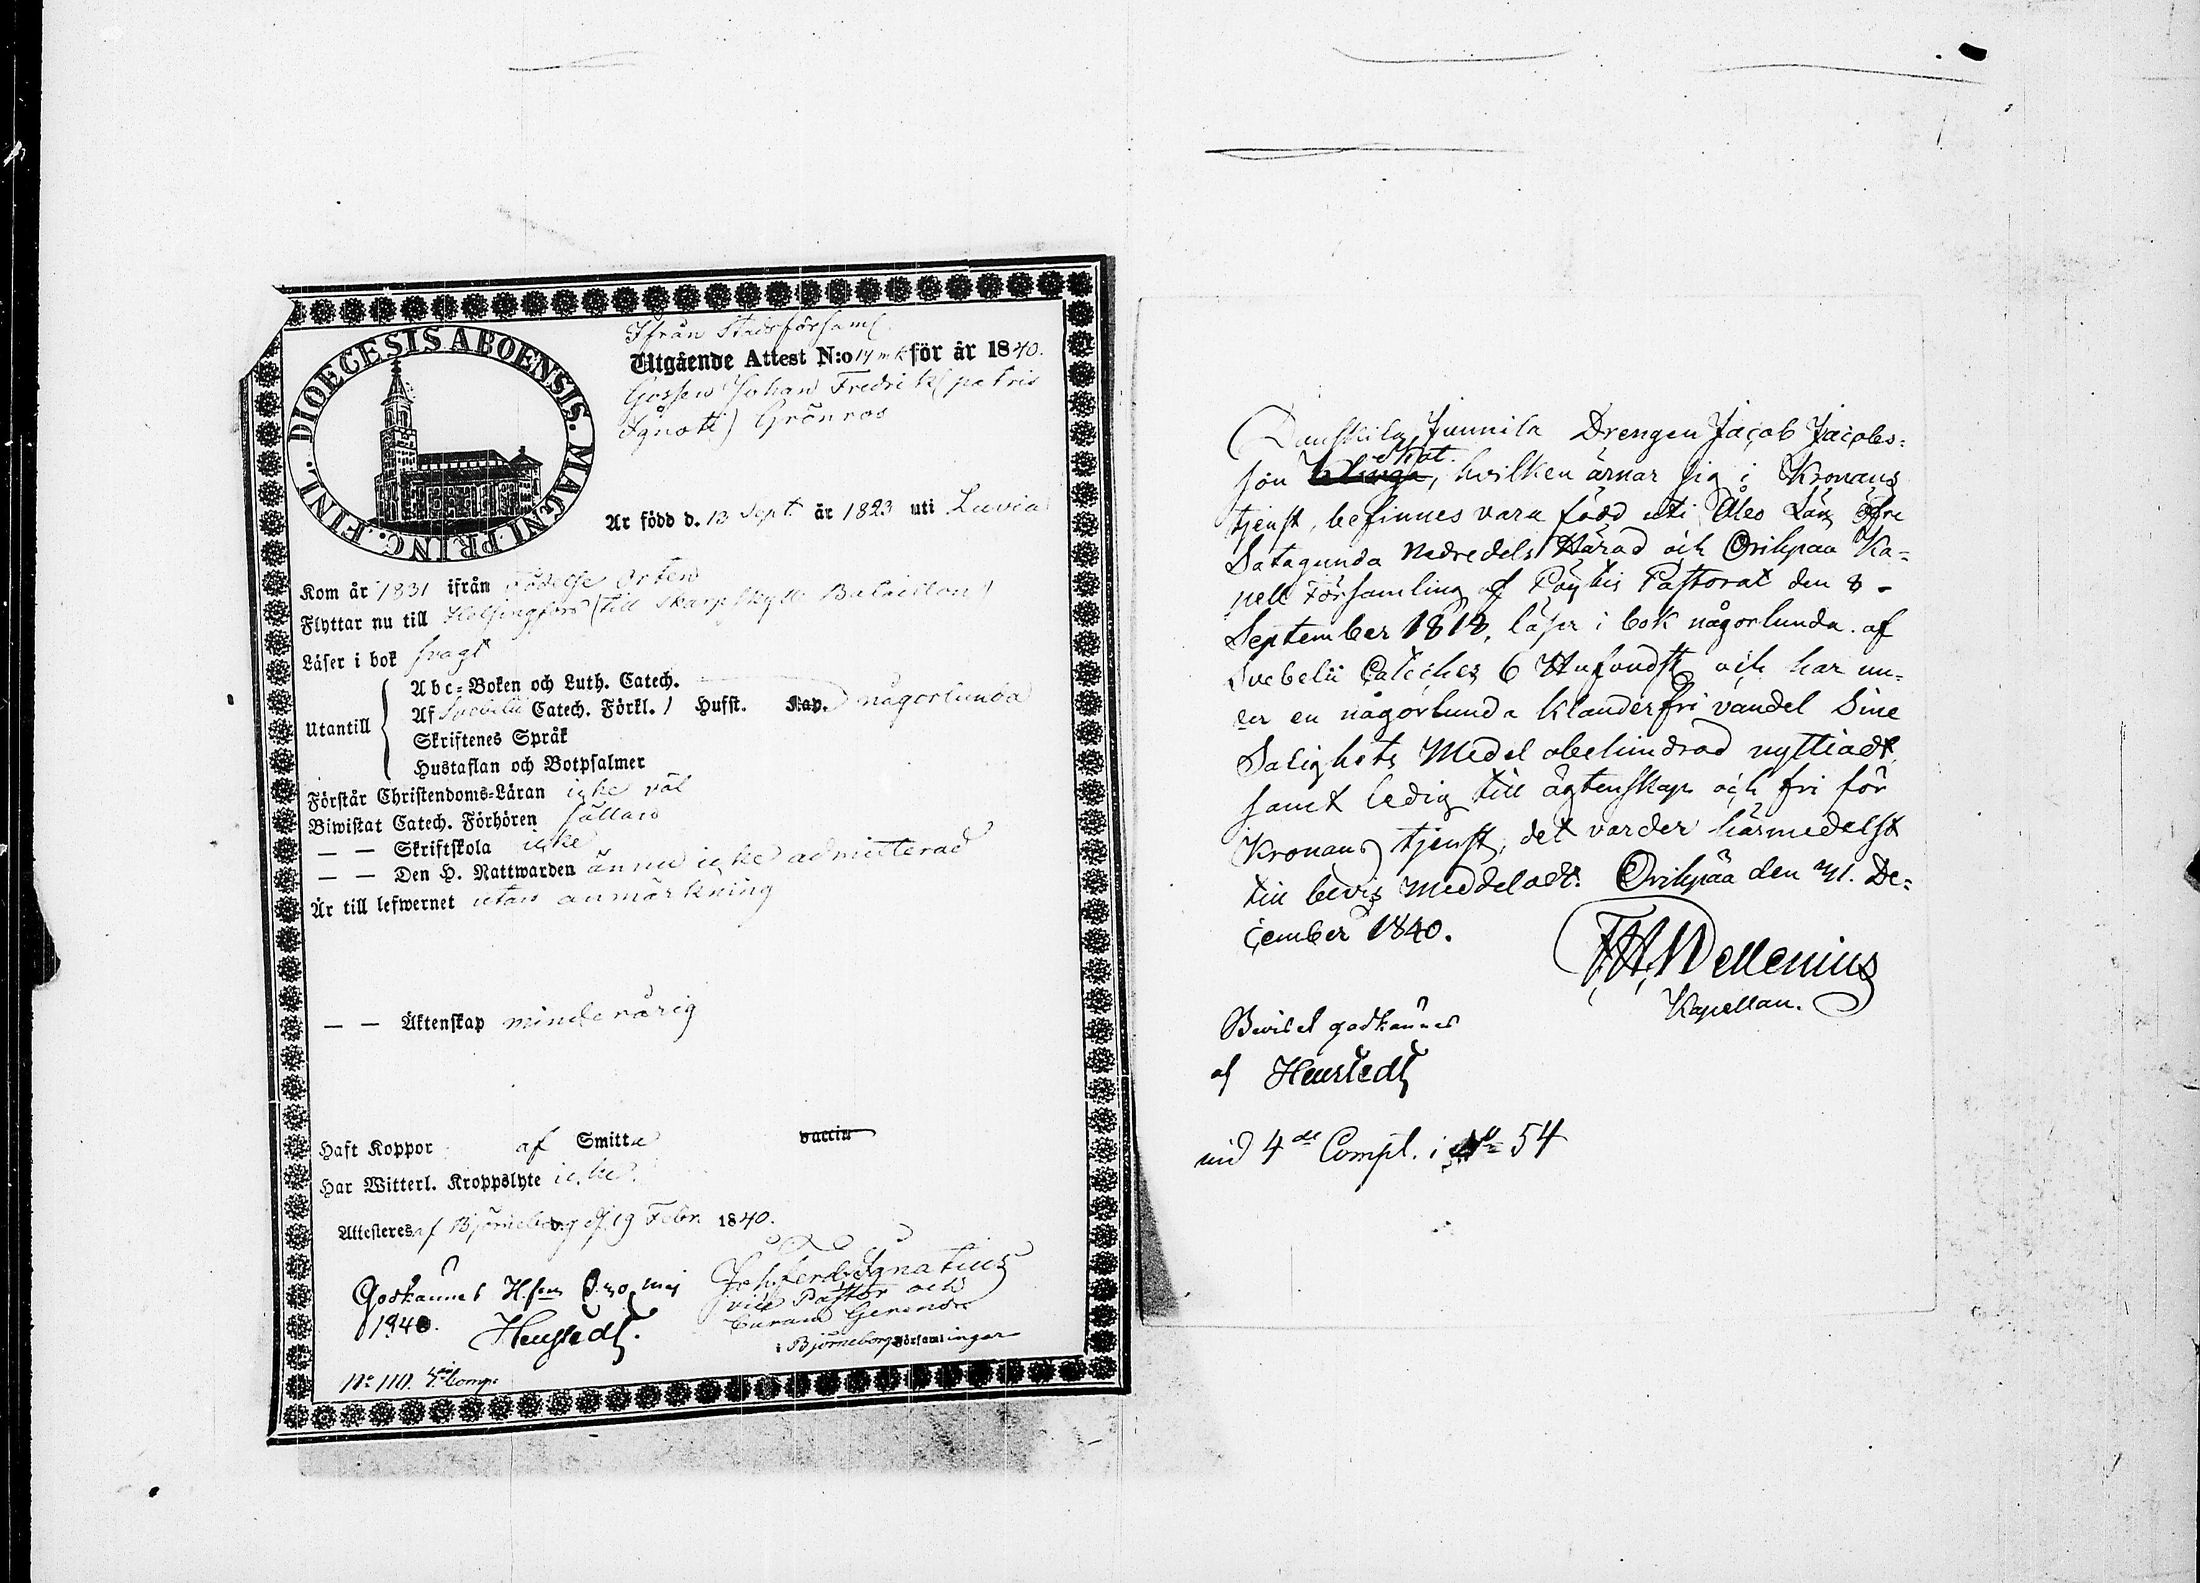 DIOECESIS ABOENSIS. MAGNI PRINC. FINL.
Ifrån Stadsförsaml.
Utgående Attest N:o 14 m k för år 1840.
Gossen Johan Fredrik (patris
Ignoti) Grönroos
Är född d. 13 Sept. år 1823 uti Luvia
Kom år 1831 ifrån Födelse Orten
Flyttar nu till Helsingfors (till Skarpskytte Bataillon)
Läser i bok svagt
Utantill
Abc-Boken och Luth. Catech.
Af Svebelii Catech. Förkl. 1 Hufst. Kap. någorlunda
Skriftenes Språk
Hustaflan och Botpsalmer
Förstår Christendoms-Läran icke väl
Biwistat Catech. Förhören sällan
— — Skriftskola icke
— — Den H. Nattwarden ännu icke admitterad
Är till lefwernet utan anmärkning
— — Äktenskap minderårig
Haft Koppor af Smitta vaccin
Har Witterl. Kroppslyte icke.
Attesteras af Björneborg d. 19 Febr. 1840.
Godkännes H:fors d. 30 Maj
1840. Henstedt.
Joh. Ferd. Ignatius
vice Pastor och
Curam Gerende
i Björneborgs Församlingar
No 110. Comp.
Junnila Drengen Jacob Jacobs-
son Skat. , hvilken ärnar sig i Kronans
tjenst, befinnes vara född uti Åbo Län Öfre
Satagunda Nedredels Härad och Oripää Ka-
pell Församling af Pöytis Pastorat den 8
September 1818, läser i bok någorlunda. af
Svebelii Cateches 6 Hufvudst. och har un-
der en någorlunda klanderfri vandel Sine
Salighets Medel obehindrad nyttiadt,
samt ledig till ägtenskap och fri för
Kronans tjenst; det varder härmedelst
till bevis meddeladt. Oripää den 31. De-
cember 1840.
F. H. Mellenius
Kapellan.
Beviset godkännes
af Henstedt
vid 4de Comp. i No 54